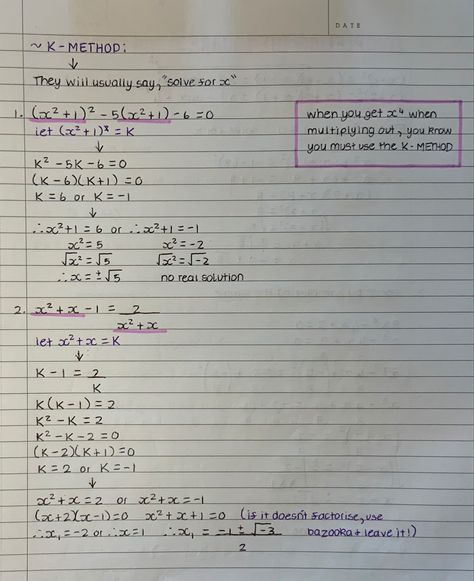 DATE
~ K-METHOD:
↓
They will usually say, "solve for x"
1. (x² + 1)² - 5(x² + 1) - 6 = 0
let (x² + 1)² = K
↓
K² - 5K - 6 = 0
(K - 6)(K + 1) = 0
K = 6 or K = -1
↓
∴ x² + 1 = 6 or ∴ x² + 1 = -1
x² = 5 x² = -2
√x² = √5 √x² = √-2
∴ x = ±√5 no real solution
when you get x⁴ when
multiplying out, you know
you must use the K-METHOD
2. x² + x - 1 = 2
x² + x
let x² + x = K
↓
K - 1 = 2
K
K(K - 1) = 2
K² - K = 2
K² - K - 2 = 0
(K - 2)(K + 1) = 0
K = 2 or K = -1
↓
x² + x = 2 or x² + x = -1
(x + 2)(x - 1) = 0 x² + x + 1 = 0 (if it doesn't factorise, use
∴ x₁ = -2 or ∴ x = 1 ∴ x₁ = -1 ± √-3 bazooka + leave it!)
2